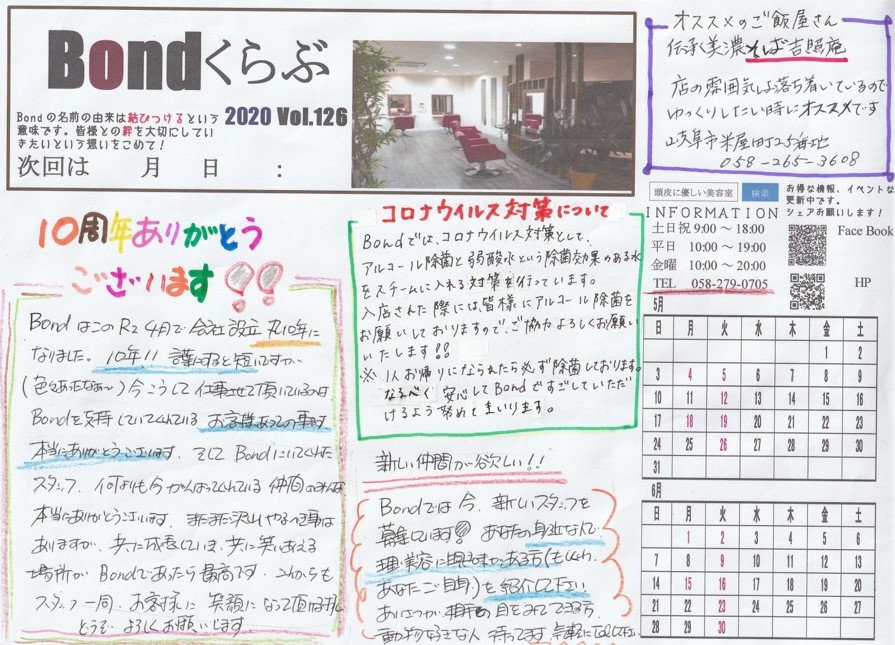 Bondくらぶ
Bondの名前の由来は結びつけるという
意味です。皆様との絆を大切にしてい
きたいという想いをこめて!
2020 Vol.126
次回は 月 日 :
オススメのご飯屋さん
伝承美濃そば吉照庵
店の雰囲気も落ち着いているので
ゆっくりしたい時にオススメです
岐阜市米屋町25番地
058-265-3608
頭皮に優しい美容室 検索
お得な情報、イベントな
更新中です。
シェアお願いします!
INFORMATION
土日祝 9:00 〜 18:00
平日 10:00 〜 19:00
金曜 10:00 〜 20:00
TEL 058-279-0705
Face Book
HP
10周年ありがとう
ございます!!
BondはこのR2 4月で会社設立丸10年に
なりました。10年!! 
(色々あったなぁ〜)今こうして仕事させて頂いているのは
Bondを支持していてくれているお客様あっての事です
本当にありがとうございます。そしてBondにいてくれた
スタッフ、何よりも今がんばってくれている仲間のみんな
本当にありがとうございます。まだまだ沢山やるべき事は
ありますが、共に成長していき、共に笑いあえる
場所がBondであったら最高です。これからも
スタッフ一同、お客様に笑顔になって頂け
どうぞよろしくお願いします。
コロナウイルス対策について
Bondでは、コロナウイルス対策として、
アルコール除菌と弱酸水という除菌効果のある水
をスチームに入れる対策を行っています。
入店された際には皆様にアルコール除菌を
お願いしておりますので、ご協力よろしくお願い
いたします!!
※1人お帰りになられたら必ず除菌しております。
なるべく安心してBondですごしていただ
けるよう努めてまいります。
新しい仲間が欲しい!!
Bondでは今、新しいスタッフを
募集しています! あなたの身近な人で
理・美容に興味がある方(もしくは、
あなたご自身)を紹介して下さい
あいさつが相手の目をみてできる方、
動物好きな人 待ってます 気軽にTELして下さい
5月
日 月 火 水 木 金 土
1 2
3 4 5 6 7 8 9
10 11 12 13 14 15 16
17 18 19 20 21 22 23
24 25 26 27 28 29 30
31
6月
日 月 火 水 木 金 土
1 2 3 4 5 6
7 8 9 10 11 12 13
14 15 16 17 18 19 20
21 22 23 24 25 26 27
28 29 30